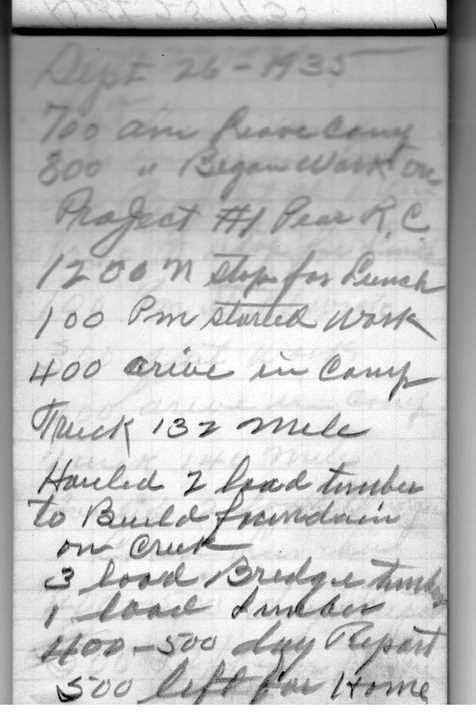 Sept 26 - 1935
700 am Leave Camp
800 " Began Work on
Project #1 Pear R.C.
1200 N stop for Lunch
100 Pm started Work
400 arive in Camp
Truck 132 mile
Hauled 2 load timber
to Build
on Creek
3 load Bredge timber
1 load
400-500 day Report
500 left for Home